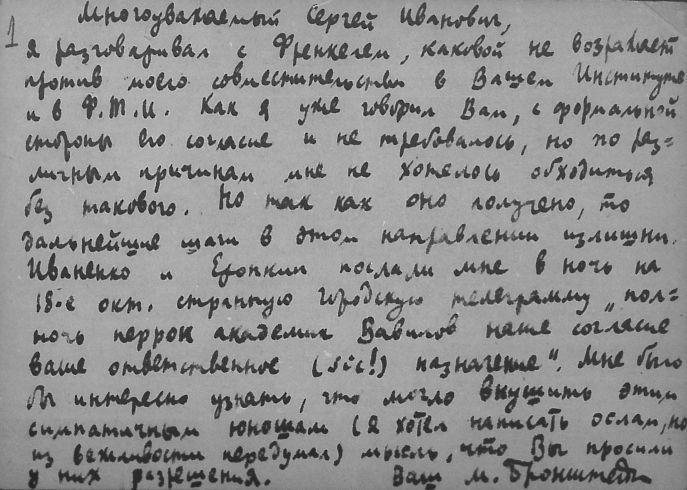 1
Многоуважаемый Сергей Иванович,
я разговаривал с Френкелем, каковой не возражает
против моего совместительства в Вашем Институте
и в Ф.Т.И. Как я уже говорил Вам, с формальной
стороны его согласие и не требовалось, но по раз=
личным причинам мне не хотелось обходиться
без такового. Но так как оно получено, то
дальнейшие шаги в этом направлении излишни.
Иваненко и Еропкин послали мне в ночь на
18-е окт. странную городскую телеграмму „пол=
ночь перрон академик Вавилов наше согласие
ваше ответственное (sic!) назначение“. Мне было
бы интересно узнать, что могло внушить этим
симпатичным юношам (я хотел написать ослам, но
из вежливости передумал) мысль, что Вы просили
у них разрешения. Ваш М. Бронштейн